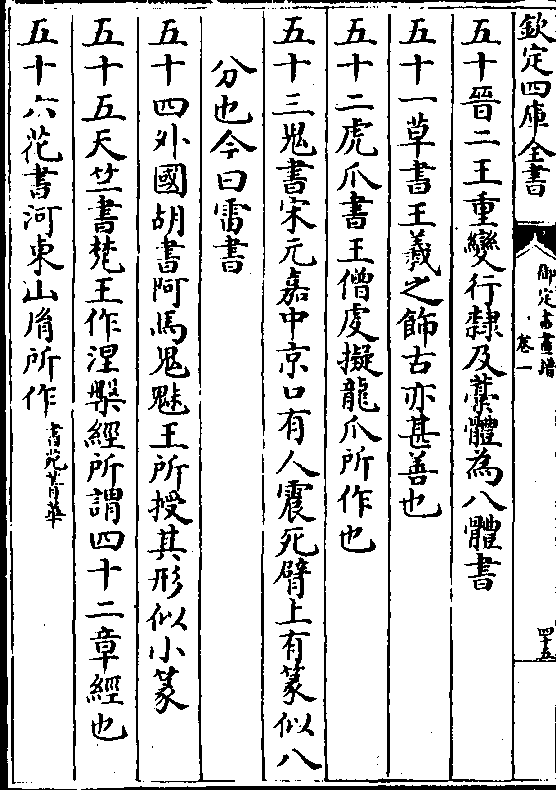 欽定四庫全書
御定書畫譜
卷一
四十五
五十晉二王重變行隸及藁體為八體書
五十一草書王羲之飾古亦甚善也
五十二虎爪書王僧䖍擬龍爪所作也
五十三鬼書宋元嘉中京口有人震死臂上有篆似八
分也今曰雷書
五十四外國胡書阿馬鬼魅王所授其形似小篆
五十五天竺書梵王作涅槃經所謂四十二章經也
五十六花書河東山𦙍所作書苑菁華